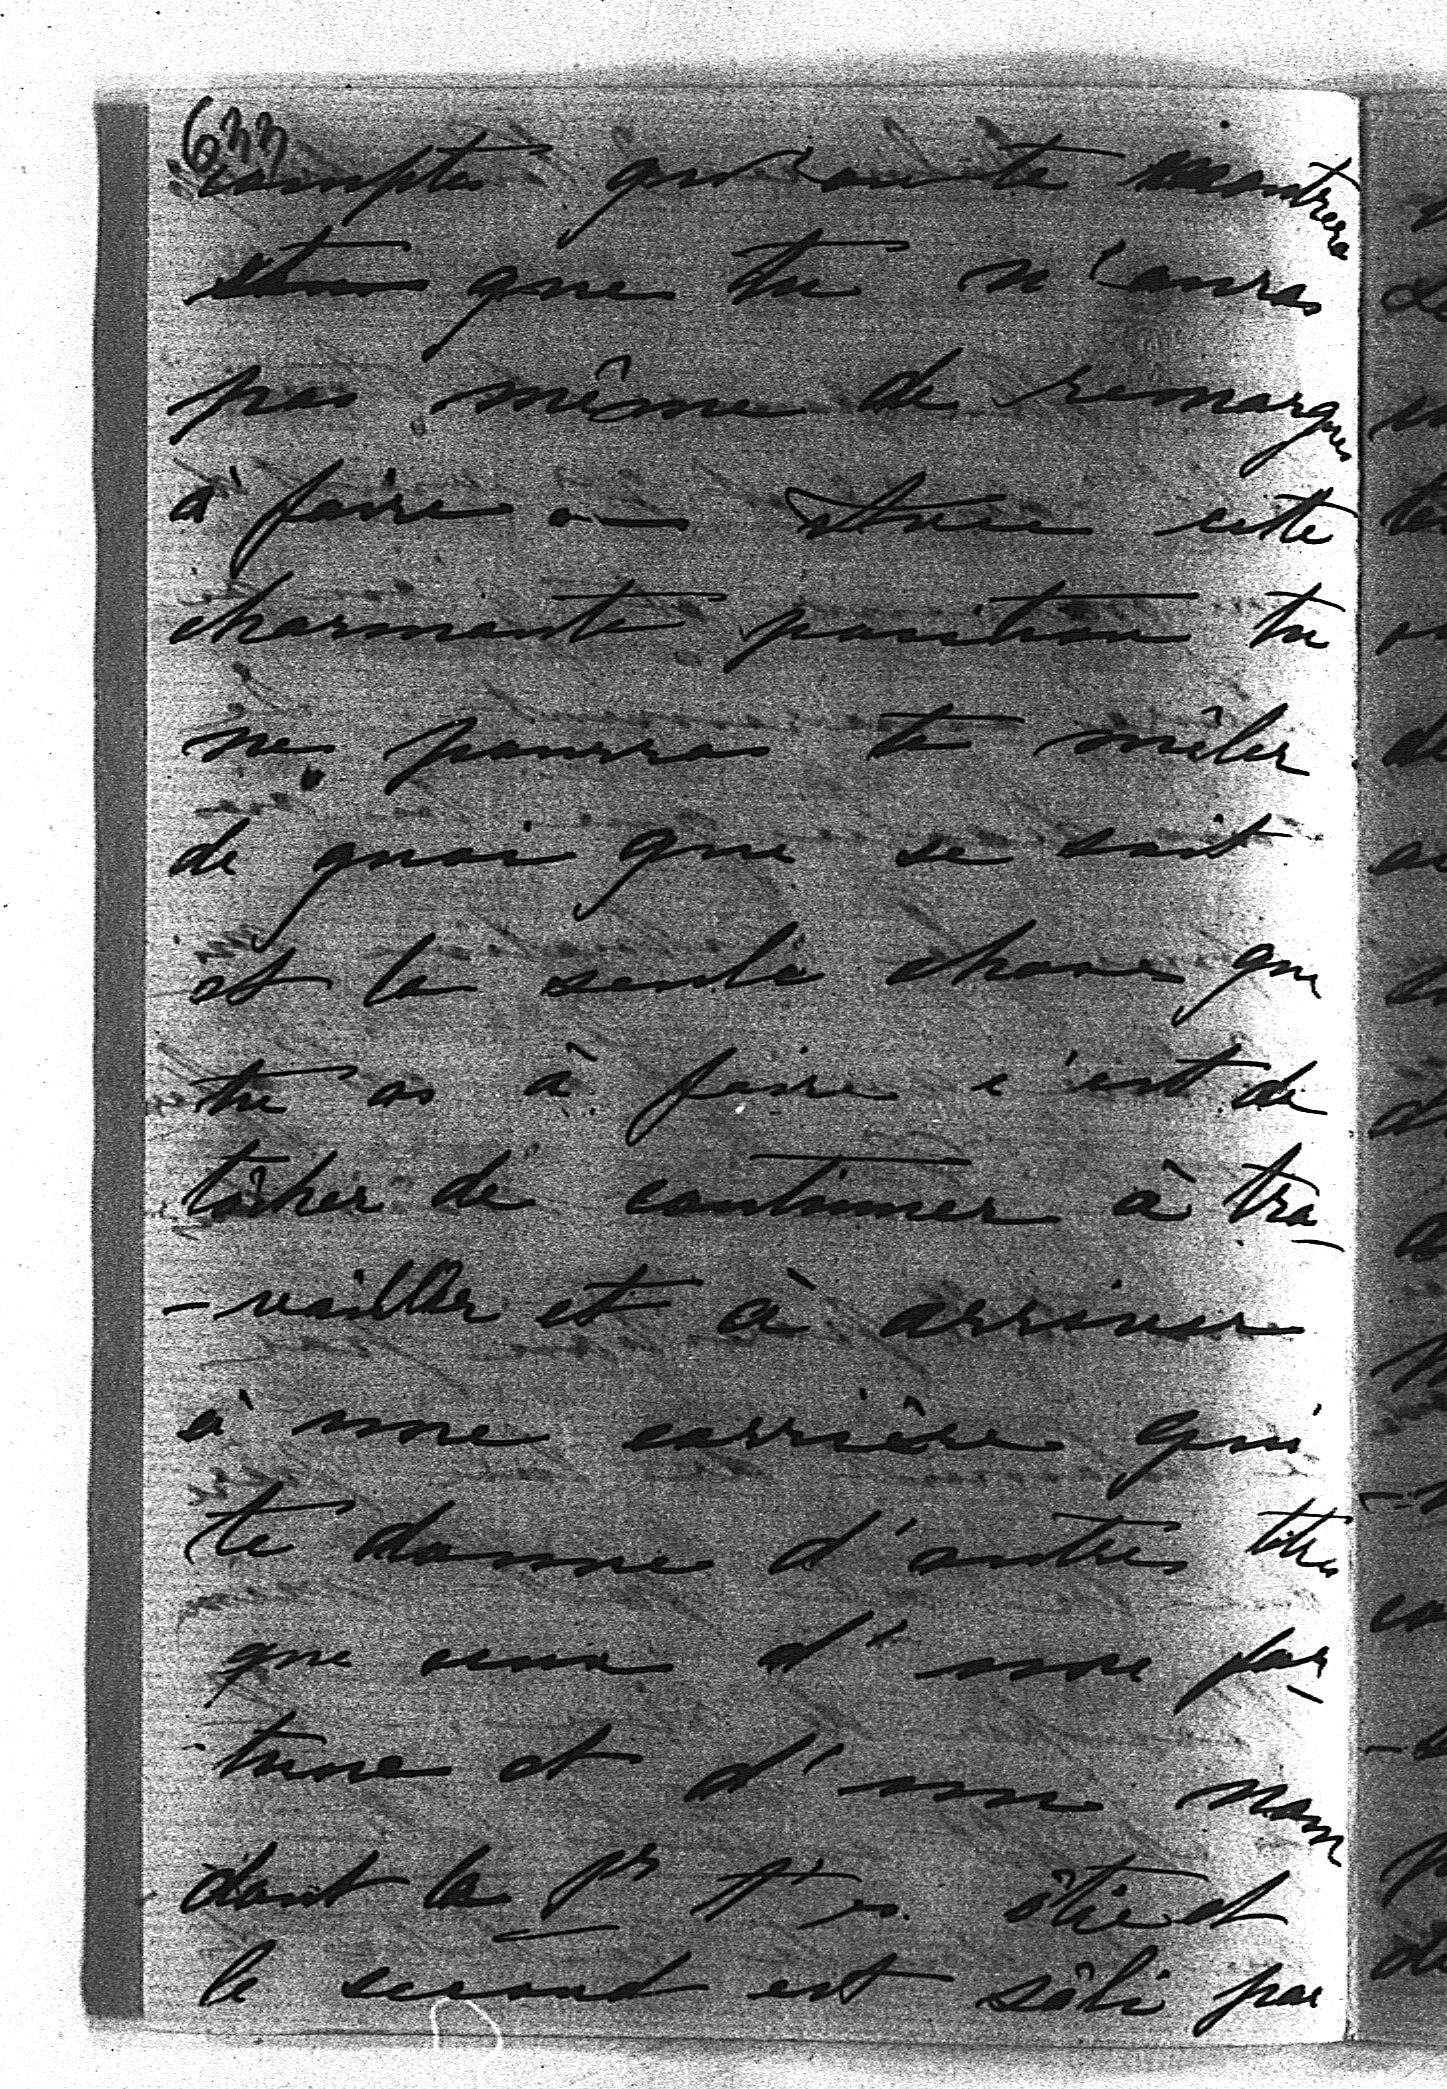 633
compte qu'on te montrera
que tu n'auras
pas même de remarques
à faire — dans cette
charmante position tu
ne pourras te mêler
de quoi que se soit
et la seule chose que
tu as à faire c'est de
tâcher de continuer à tra-
-vailler et à arriver
à une carrière qui
te donne d'autres titres
que ceux d'une for-
tune et d'un nom
dont la 1r t'es ôtée et
le second est sâli par